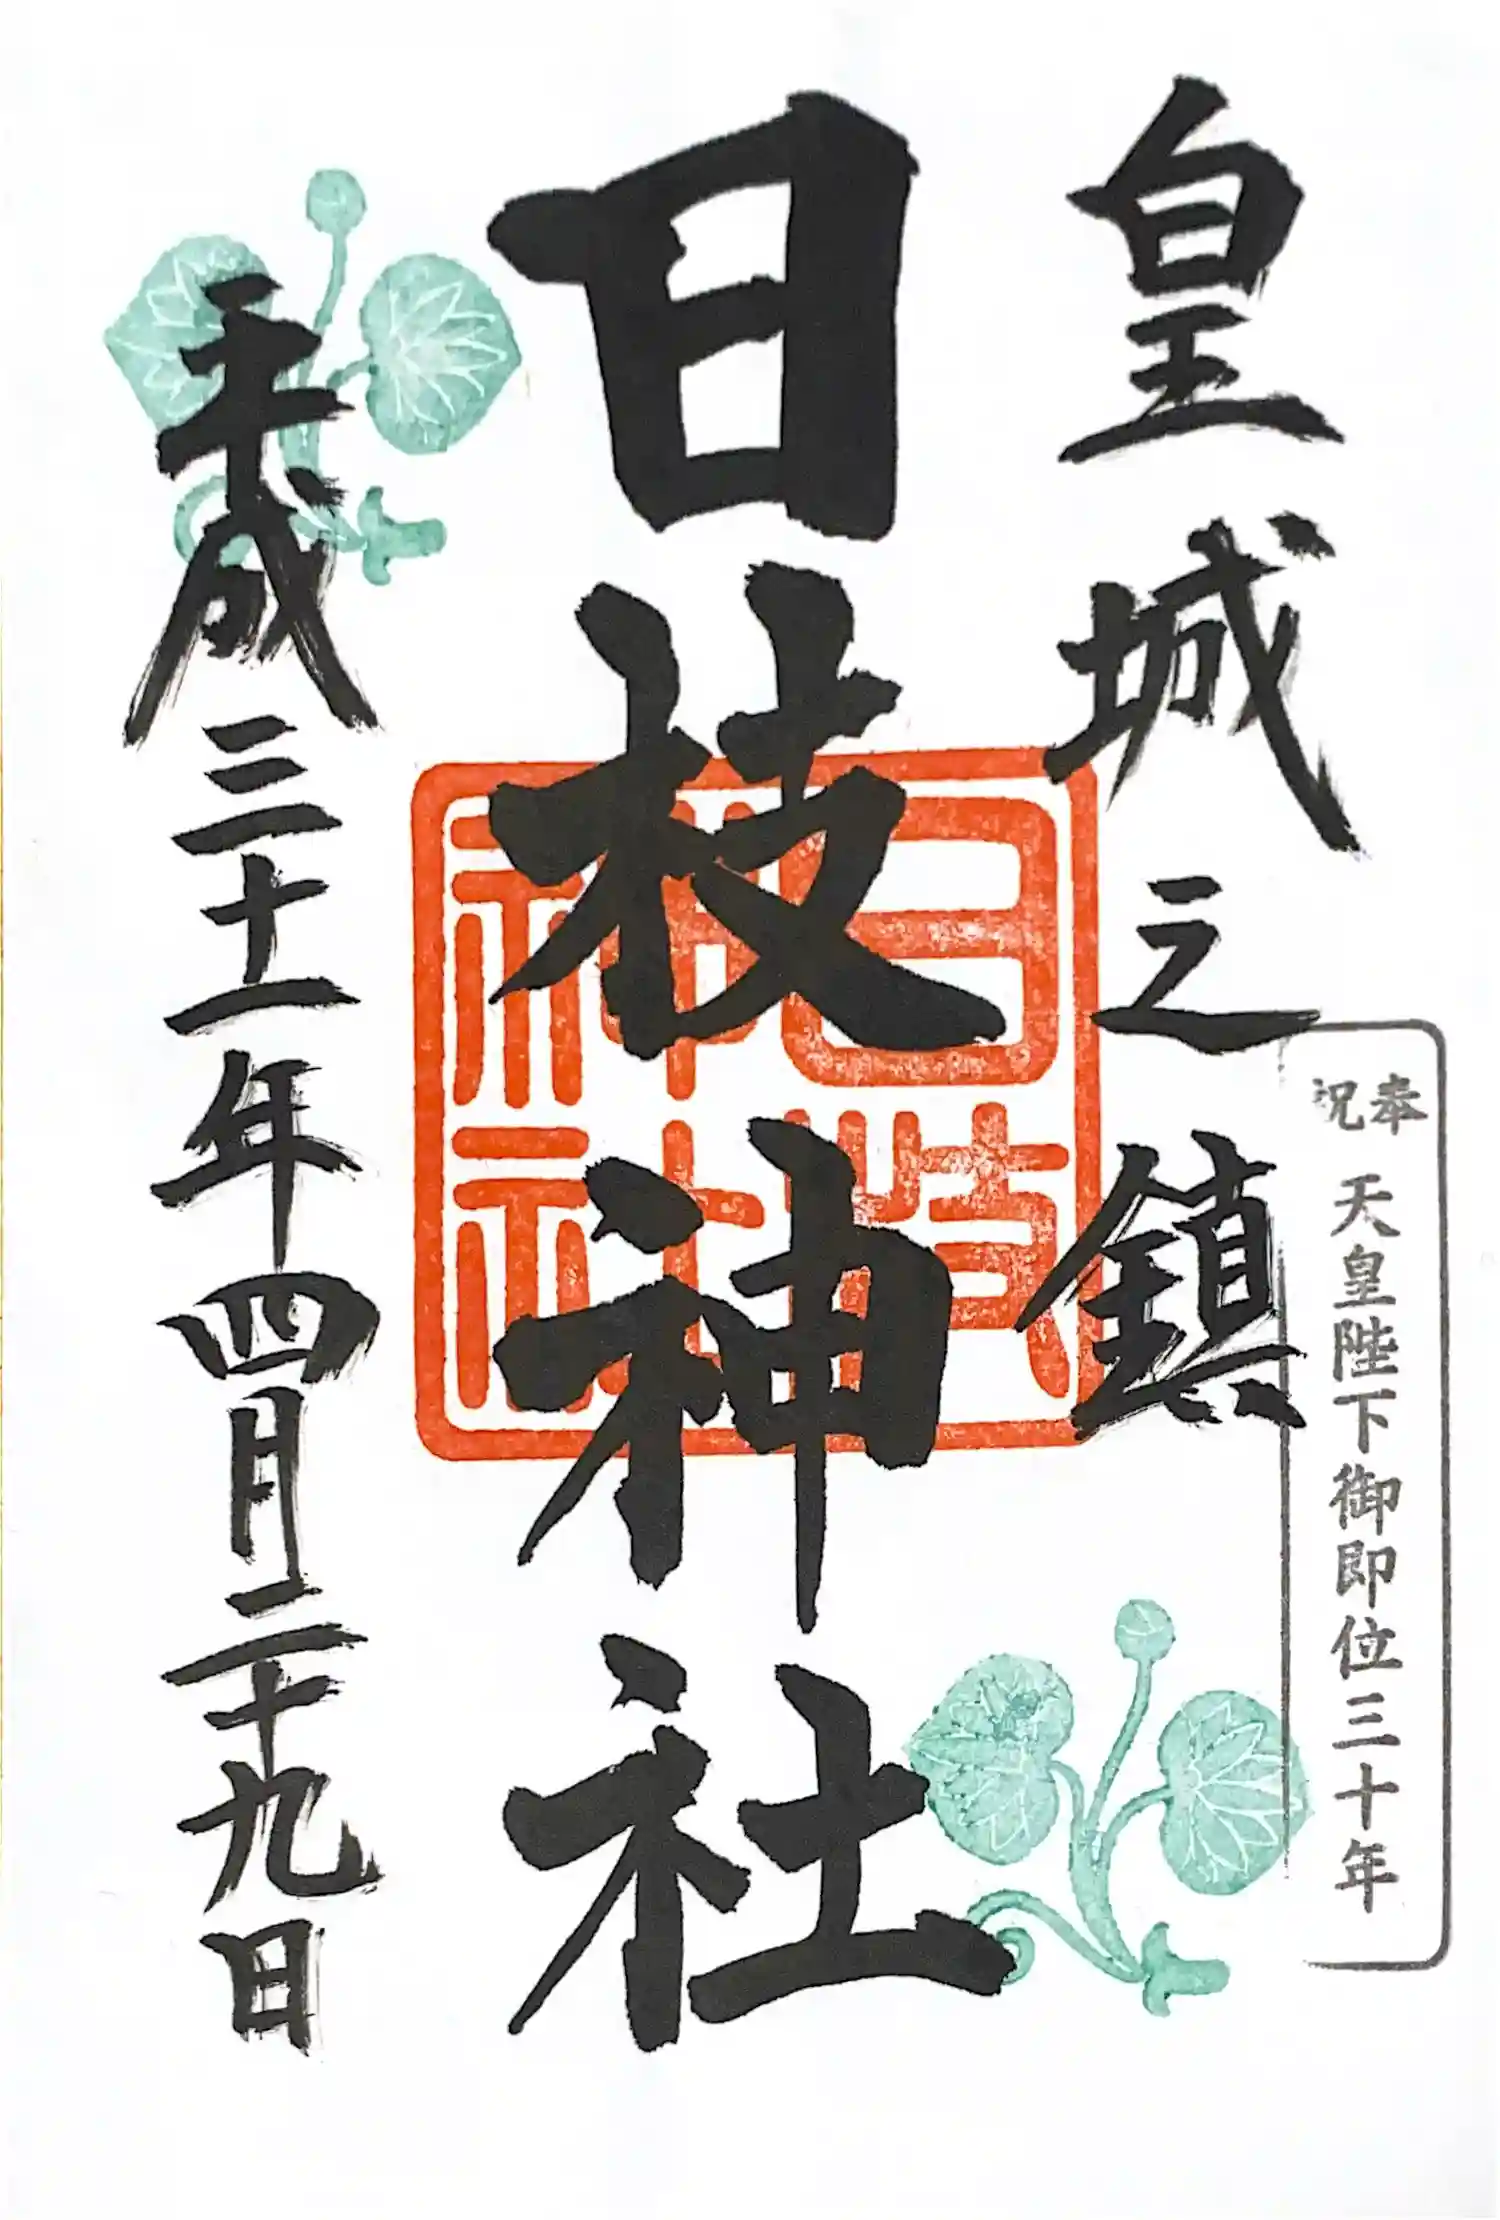 奉祝
天皇陛下御即位三十年
皇城之鎮
日枝神社
日枝神社
平成三十一年四月二十九日